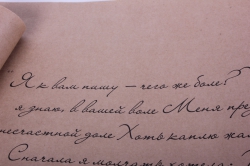 "Я к вам пишу – чего же боле?
я знаю, в вашей воле Меня през
несчастной доле Хоть каплю жал
Сначала я молчать хотела